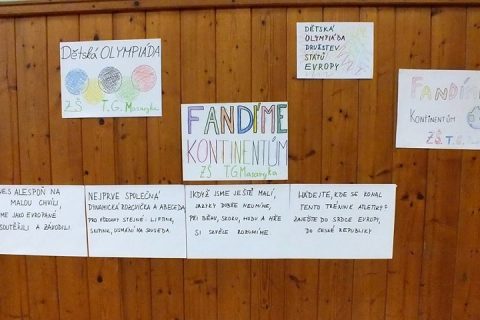 Dětská OLYMPIÁDA
ZŠ T.G. Masaryka
DĚTSKÁ
OLYMPIÁDA
DRUŽSTEV
STÁTŮ
EVROPY
FANDÍME
KONTINENTŮM
ZŠ T.G Masaryka
FANDÍM
KONTINENTŮM
ZŠ T.G.
NES ALESPOŇ NA
MALOU CHVÍLI,
ME JAKO EVROPANÉ
SOUTĚŽILI A ZÁVODILI.
NEJPRVE SPOLEČNÁ
DYNAMICKÁ ROZCVIČKA A ABECEDA
PRO VŠECHNY STEJNÉ: LIFTINK,
SKIPINK, USMÁNÍ NA SOUSEDA.
IKDYŽ JSME JEŠTĚ MALÍ,
JAZYKY DOBŘE NEUMÍME,
PŘI BĚHU, SKOKU, HODU A HŘE
SI SKVĚLE ROZUMÍME
HÁDEJTE, KDE SE KONAL
TENTO TRÉNINK ATLETIKY?
ZAJEĎTE DO SRDCE EVROPY,
DO ČESKÉ REPUBLIKY